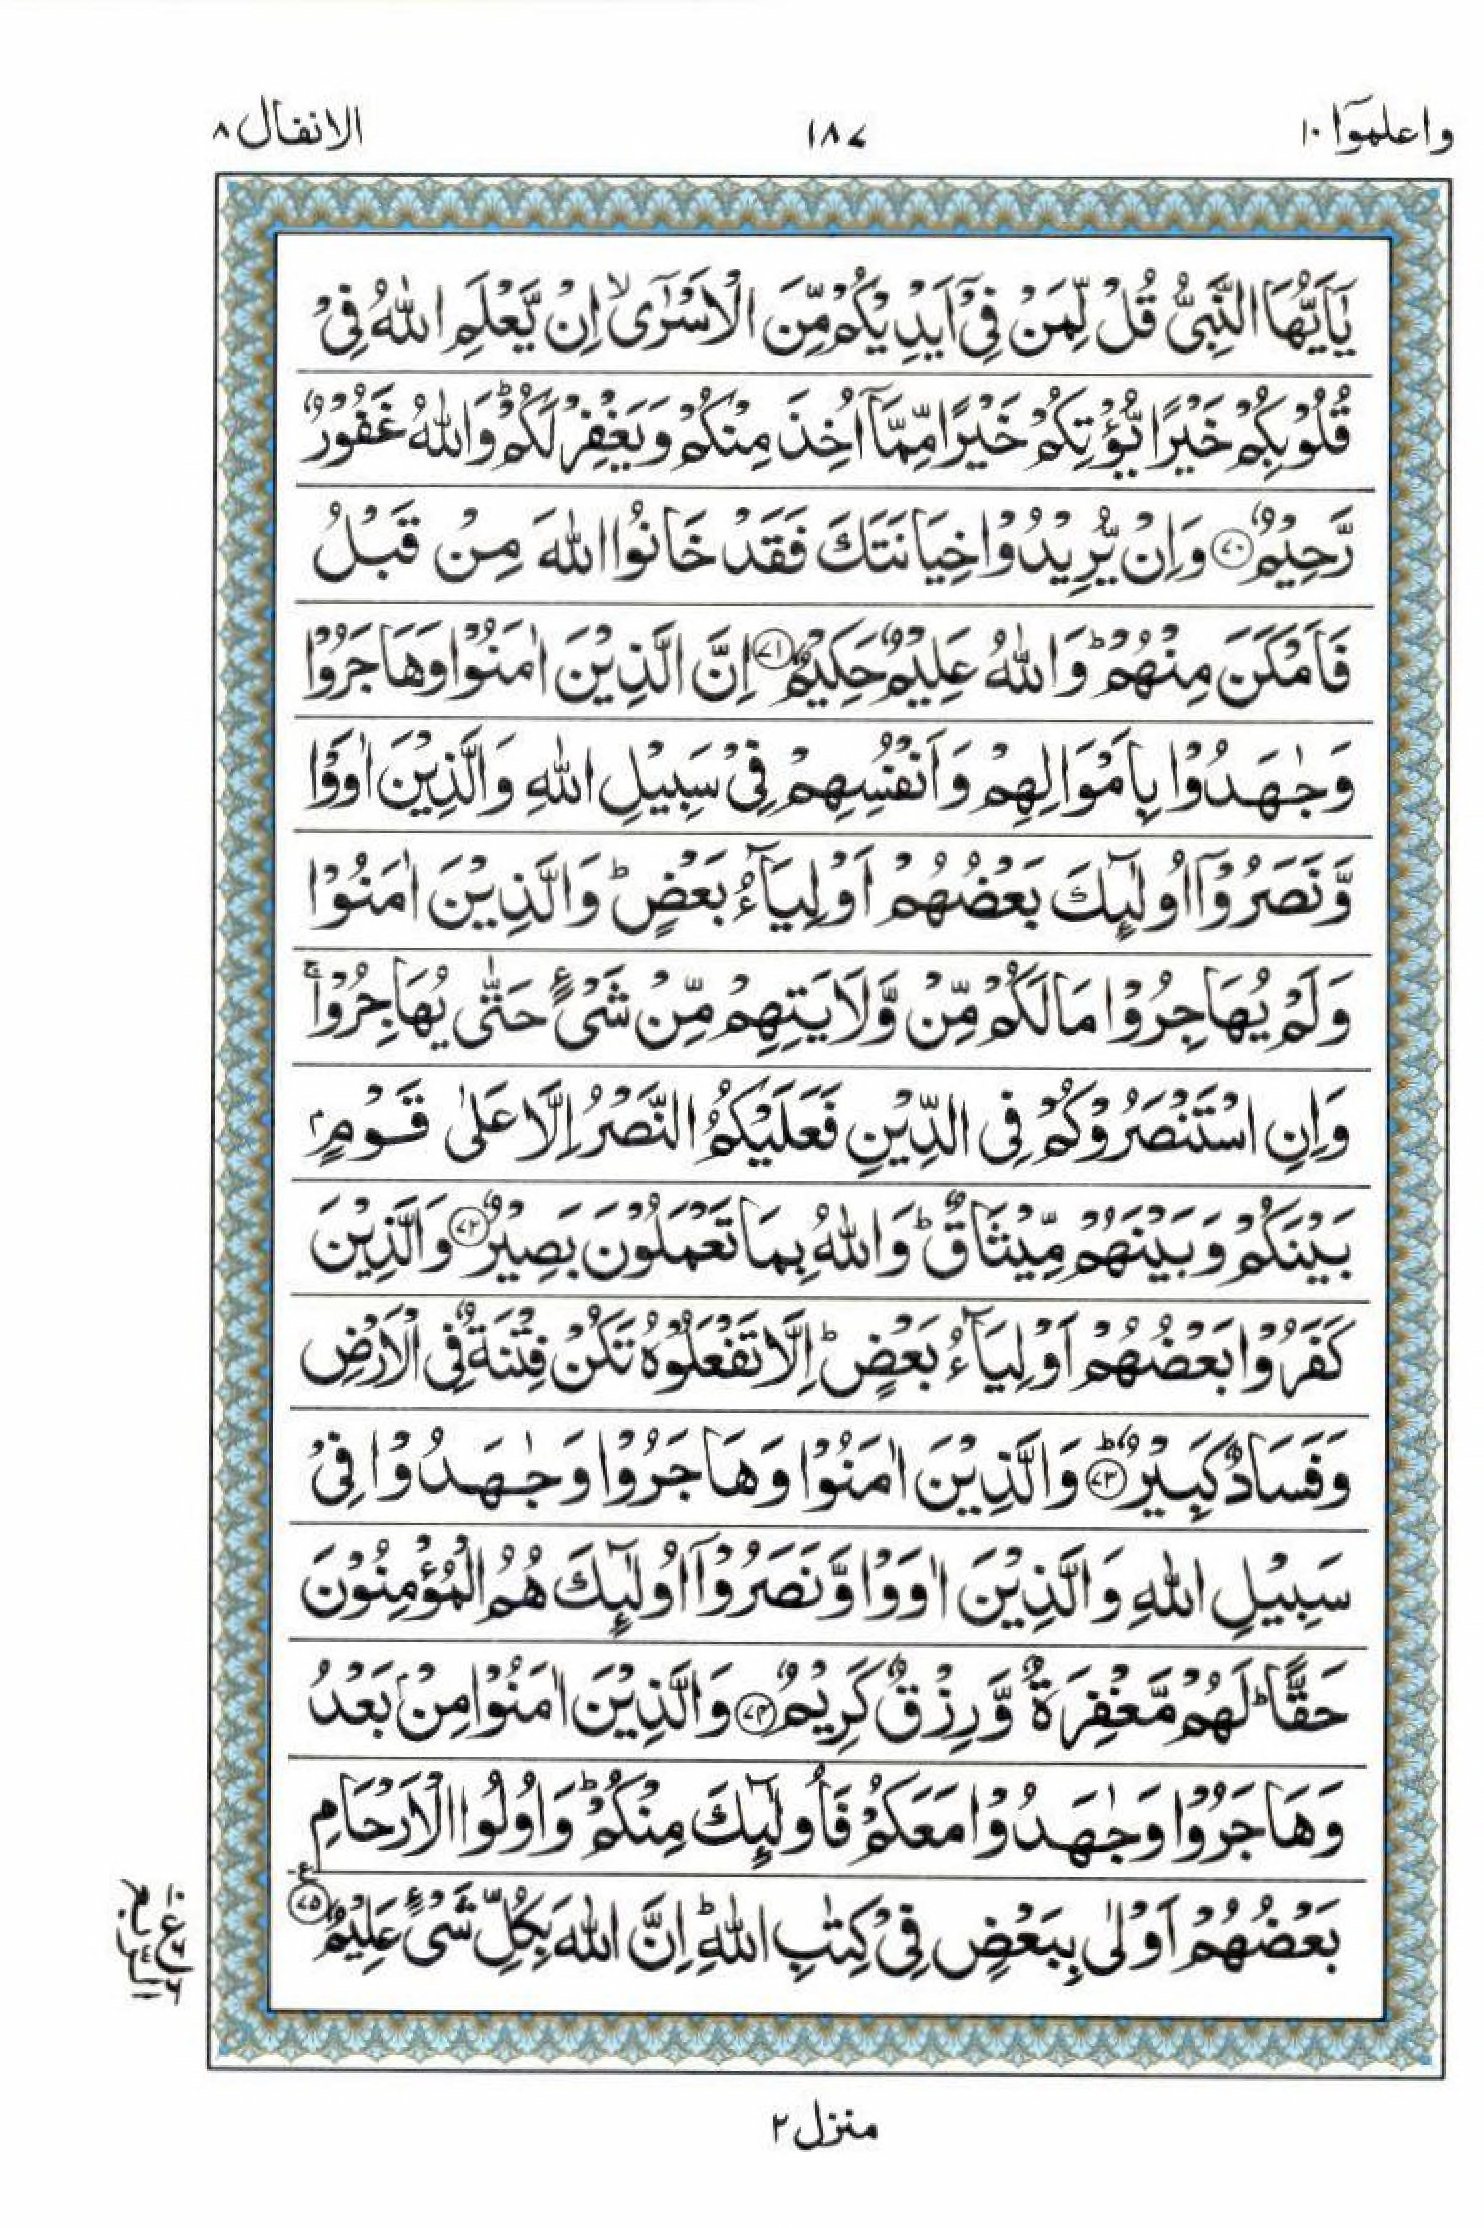 واعلموۤا ۱۰
۱۸۷
الانفال ۸
يٰۤاَيُّهَا النَّبِىُّ قُلْ لِّمَنْ فِىْۤ اَيْدِيْكُمْ مِّنَ الْاَسْرٰٓى ۙ اِنْ يَّعْلَمِ اللّٰهُ فِىْ
قُلُوْبِكُمْ خَيْرًا يُّؤْتِكُمْ خَيْرًا مِّمَّاۤ اُخِذَ مِنْكُمْ وَيَغْفِرْ لَكُمْ ؕ وَاللّٰهُ غَفُوْرٌ
رَّحِيْمٌ ﴿۷۰﴾ وَاِنْ يُّرِيْدُوْا خِيَانَتَكَ فَقَدْ خَانُوا اللّٰهَ مِنْ قَبْلُ
فَاَمْكَنَ مِنْهُمْ ؕ وَاللّٰهُ عَلِيْمٌ حَكِيْمٌ ﴿۷۱﴾ اِنَّ الَّذِيْنَ اٰمَنُوْا وَهَاجَرُوْا
وَجٰهَدُوْا بِاَمْوَالِهِمْ وَاَنْفُسِهِمْ فِىْ سَبِيْلِ اللّٰهِ وَالَّذِيْنَ اٰوَوْا
وَّنَصَرُوْۤا اُولٰٓئِكَ بَعْضُهُمْ اَوْلِيَآءُ بَعْضٍ ؕ وَالَّذِيْنَ اٰمَنُوْا
وَلَمْ يُهَاجِرُوْا مَا لَكُمْ مِّنْ وَّلَايَتِهِمْ مِّنْ شَىْءٍ حَتّٰى يُهَاجِرُوْا ۚ
وَاِنِ اسْتَنْصَرُوْكُمْ فِى الدِّيْنِ فَعَلَيْكُمُ النَّصْرُ اِلَّا عَلٰى قَوْمٍۭ
بَيْنَكُمْ وَبَيْنَهُمْ مِّيْثَاقٌ ؕ وَاللّٰهُ بِمَا تَعْمَلُوْنَ بَصِيْرٌ ﴿۷۲﴾ وَالَّذِيْنَ
كَفَرُوْا بَعْضُهُمْ اَوْلِيَآءُ بَعْضٍ ؕ اِلَّا تَفْعَلُوْهُ تَكُنْ فِتْنَةٌ فِى الْاَرْضِ
وَفَسَادٌ كَبِيْرٌ ؕ ﴿۷۳﴾ وَالَّذِيْنَ اٰمَنُوْا وَهَاجَرُوْا وَجٰهَدُوْا فِىْ
سَبِيْلِ اللّٰهِ وَالَّذِيْنَ اٰوَوْا وَّنَصَرُوْۤا اُولٰٓئِكَ هُمُ الْمُؤْمِنُوْنَ
حَقًّا ؕ لَهُمْ مَّغْفِرَةٌ وَّرِزْقٌ كَرِيْمٌ ﴿۷۴﴾ وَالَّذِيْنَ اٰمَنُوْا مِنْۢ بَعْدُ
وَهَاجَرُوْا وَجٰهَدُوْا مَعَكُمْ فَاُولٰٓئِكَ مِنْكُمْ ؕ وَاُولُوا الْاَرْحَامِ
بَعْضُهُمْ اَوْلٰى بِبَعْضٍ فِىْ كِتٰبِ اللّٰهِ ؕ اِنَّ اللّٰهَ بِكُلِّ شَىْءٍ عَلِيْمٌ ﴿۷۵﴾
۱۰
ع
۶
۶
منزل ۲